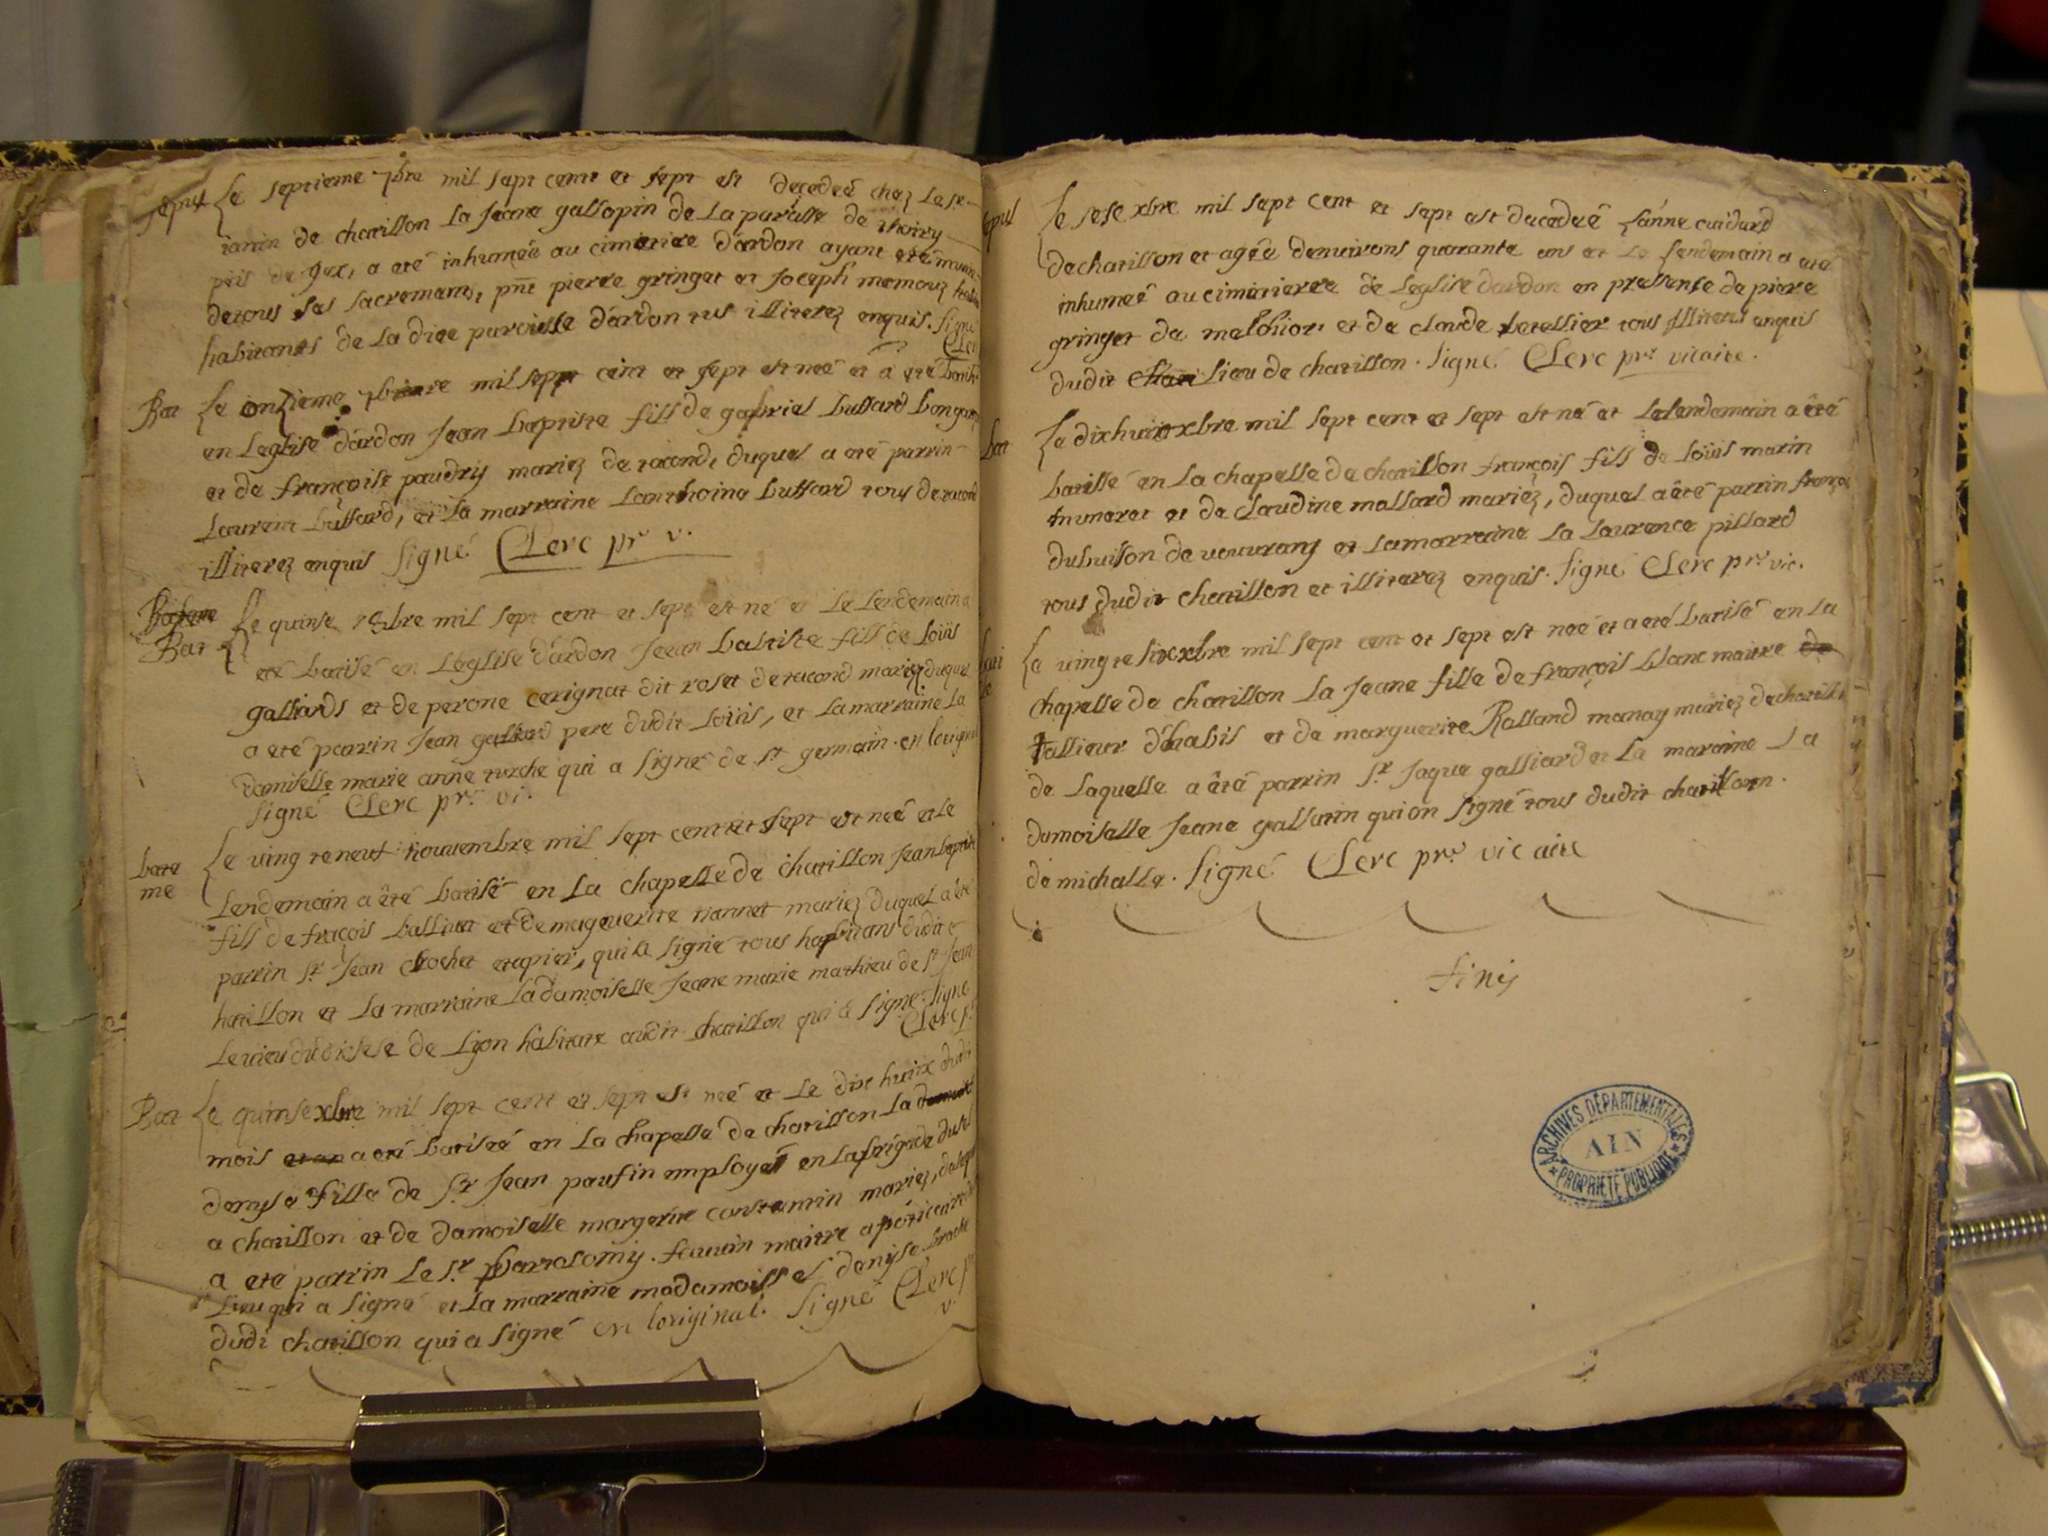 sepul Le septieme 7bre mil sept cent et sept est decedeé chez Le sr
de chatillon La Jeane gallopin de La paroisse de thoiry
peis de gex, a eté inhumeé au cimetiere d'ardon ayant eté munie
de tous ses sacremants, pnt pierre gringet et Joseph memouz
habitants de La dite paroisse d'ardon tus illiterez enquis. signé
Clerc
Bat Le onzieme mil sept cent et sept est neé et a eté batisé
en Leglise d'ardon Jean baptiste fils de gabriel buffard bongarz
et de françoise paudrij mariez de tacond, duquel a eté parrin
Laurent buffard, et La marraine Lanthoine buffard tous de tacond
illiterez enquis signé Clerc pr v.
Bat Le quinse mil sept cent et sept est né et Le Lendemain a
eté batisé en L'eglise d'ardon Jean batiste fils de Loüis
galliards et de perone cerignat dit roset de tacond mariez duquel
a eté parrin Jean galliard pere dudit Loüis, et Lamarraine La
demiselle marie anne turche qui a signé de st germain. en Lorigina
signé Clerc pr. vi.
bate
me
Le ving te neuf nouvembre mil sept cent et sept est neé et Le
Lendemain a êté batisé en La chapelle de chatillon Jean baptiste
fils de fraçois ballivat et de maguerite niannet mariez duquel a eté
parrin sr. Jean Crochet etapier, qui a signé tous habitans dudit c
hatillon et La marraine La damoiselle Jeane marie mathieu de st Jean
Le vieu du diosese de Lyon habitate audit chatillon qui a signe. signe
Clerc pr
Bat Le quinse xbre mil sept cent et sept est neé et Le dix huitx dudi
mois a eté batiseé en La chapelle de chatillon La
denyse fille de sr Jean paufin employeé en La brigade du sel
a chatillon et de damoiselle margerite constantin mariez, de Laquel
a eté parrin Le sr. bartolomy. fauvin maitre apoticaire
Lieu qui a signé et La marraine madamoiselles denyse broche
dudi chatillon qui a signé en Loriginal. signé Clerc pr
v.
sepul Le sese xbre mil sept cent et sept est decedeé L'anne cuidurd
de chatillon et ageé denvirons quarante ans et Le Lendemain a eté
inhumeé au cimitierre de Leglise dardon en pressense de piere
gringet de melchior et de claude Letellier tous illiterez enquis
dudit Lieu de chatillon. signé Clerc pr. vicaire.
bat Le dixhuit xbre mil sept cent et sept est né et Le Lendemain a êté
batissé en La chapelle de chatillon françois fils de Loüis marin
et de Claudine mallard mariez, duquel a êté parrin françois
dubuison de vouvrang et La marraine La Laurence pillard
tous dudit chatillon et illiterez enquis. signé Clerc pr. vic.
Le ving te six xbre mil sept cent et sept est neé et a eté batisé en La
chapelle de chatillon La Jeane fille de françois blanc maitre
tallieur d'habis et de marguerite Rolland manay mariez de chatillo
de Laquelle a êté parrin sr. Jaque galliard et La maraine La
damoiselle Jeane gallatin qui on signé tous dudit chatillon.
de michalle. signé Clerc pr. vicaire
finis
ARCHIVES DÉPARTEMENTALES
AIN
PROPRIÉTÉ PUBLIQUE